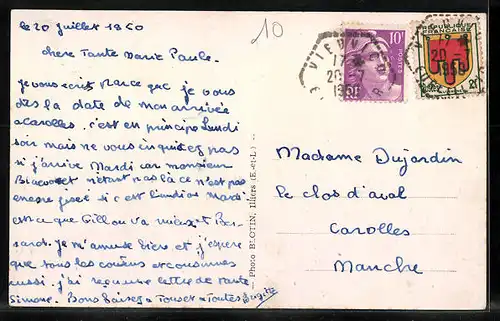 le 20 juillet 1950
10
chere Tante Marie Paule.
je vous écris parce que je vous
dis la date de mon arrivée
a carolles, c'est en principe Lundi
soir mais ne vous inquiétez pas
si j'arrive Mardi car monsieur
n'étant pas là ce n'est pas
encore fixé si c'est lundi ou mardi
est ce que Gill ou va mieux et Ber
nard. je m'amuse bien et j'espère
que tous les cousins et cousines
aussi. j'ai reçu une lettre de tante
Simone. Bons baisers a Tous et a Toutes
Photo BLOTIN, Illiers (E.-et-L.)
10F
POSTE
RF
REPUBLIQUE
FRANÇAISE
2F
20 -7
1950
Madame Dujardin
Le clos d'aval
Carolles
Manche